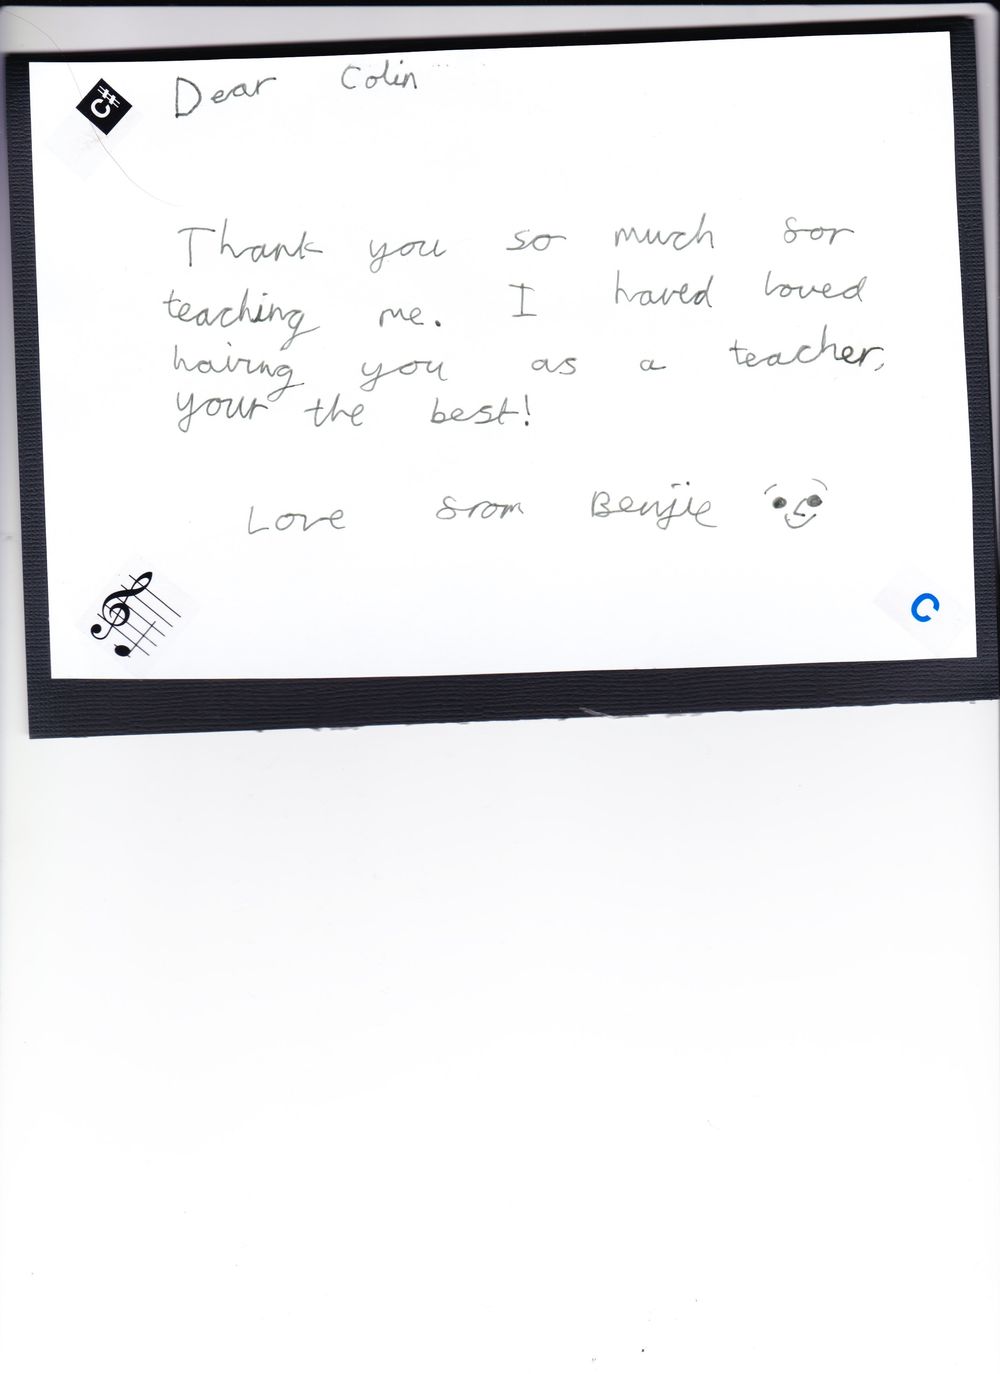 C#
Dear Colin
Thank you so much for
teaching me. I haved loved
having you as a teacher,
your the best!
Love from Benjie
C